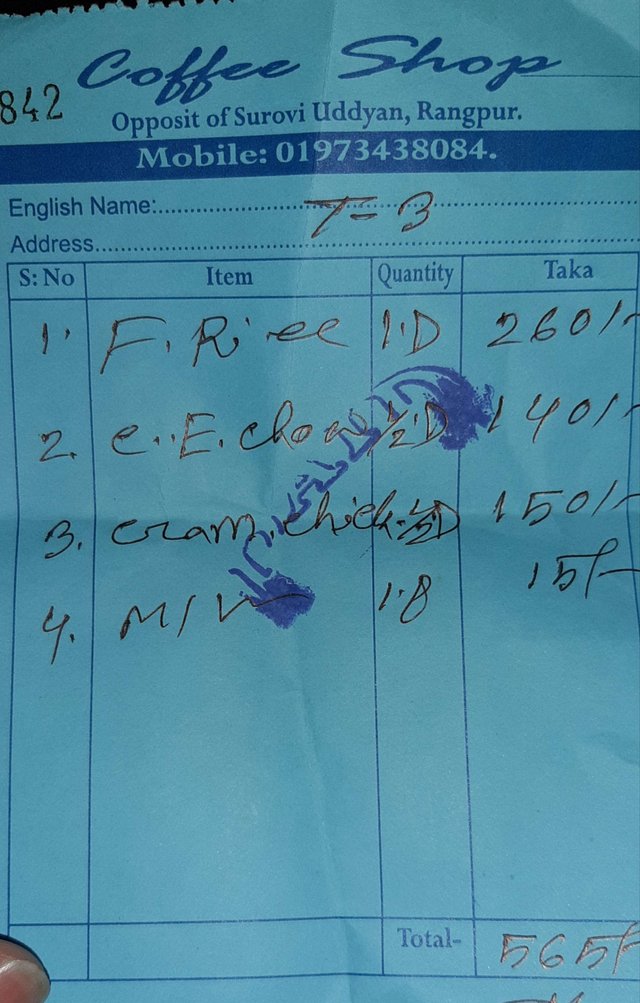 Coffee Shop
842
Opposit of Surovi Uddyan, Rangpur.
Mobile: 01973438084.
English Name: T-3
Address
S: No Item Quantity Taka
1. F. Rice 1.D 260/-
2. C.. E. chow 1/2.D 140/-
3. cram. chick. 1/2D 150/-
4. M/W 1.8 15/-
Total- 565/-